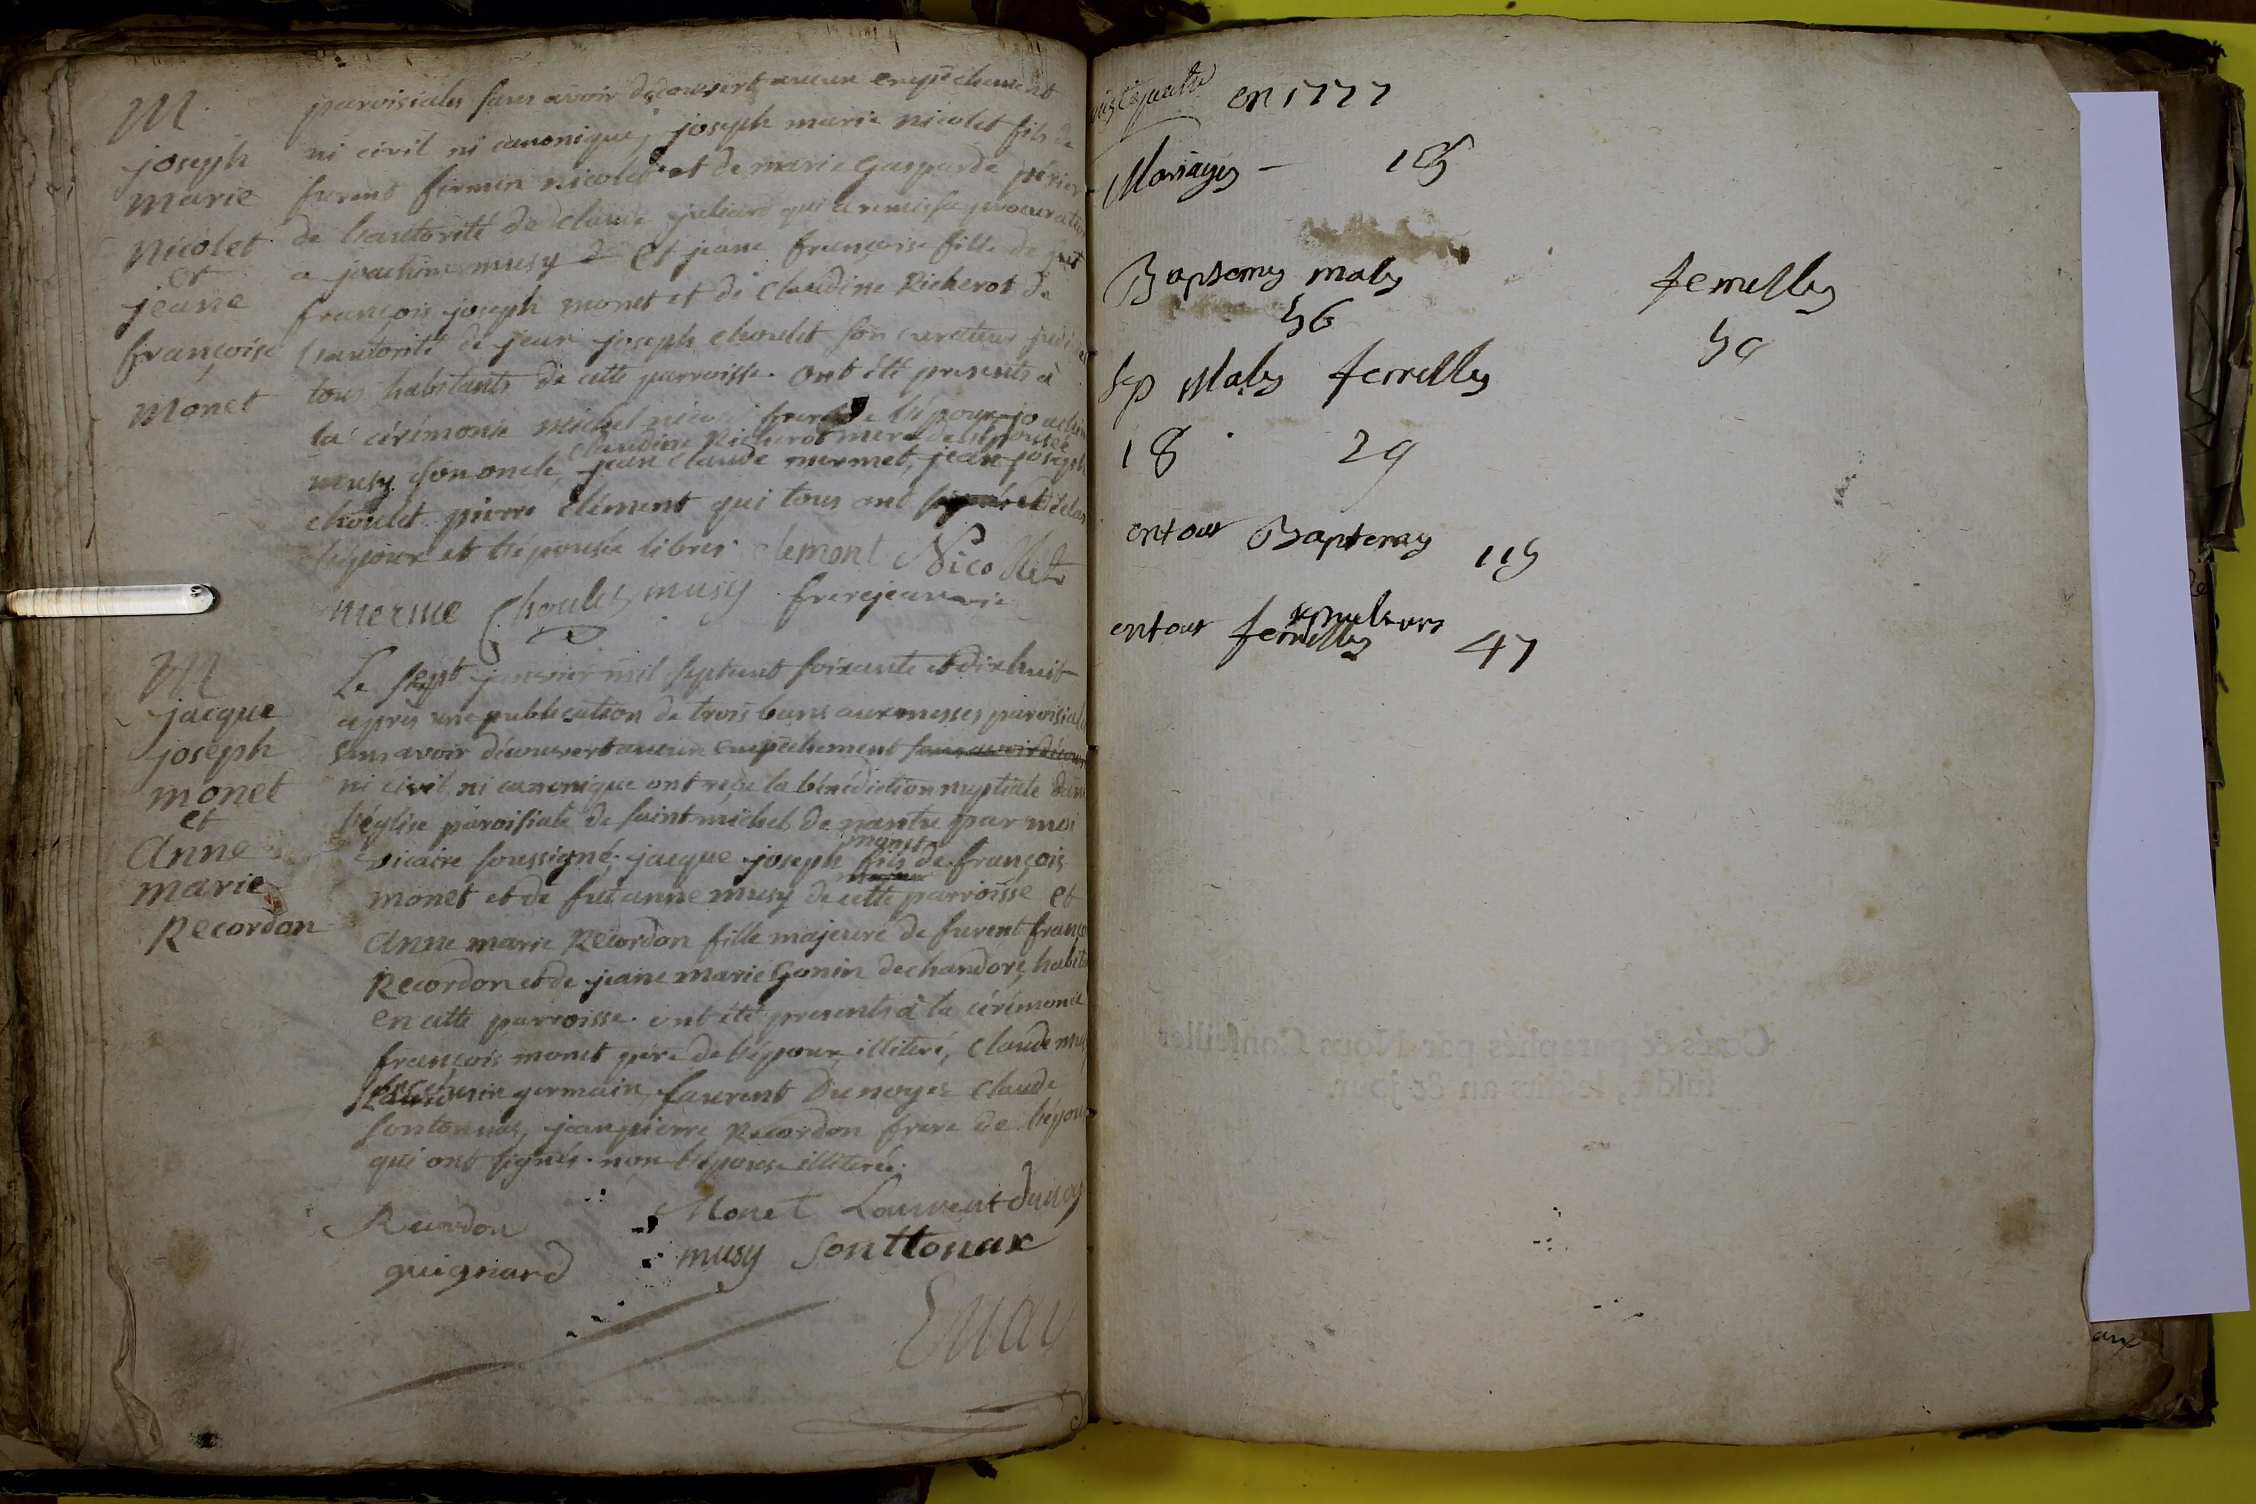 M
joseph
marie
Nicolet
et
jeane
françoise
Monet
paroisiales sans avoir découvert aucun empechement
ni civil ni canonique, joseph marie nicolet fils de
furent firmin nicolet et de marie Gasparde périer
de l'autorité de claude juliard qui a remis sa procuration
a joachim musy et jeane françoise fille de fut
françois joseph monet et de Claudine Richerot de
l'autorité de jean joseph choulet son curateur
tous habitants de cette parroisse. ont été presents à
la cérémonie michel nicolet frere de l'époux, joachim
claudine Richerot mere de l'épousée
musy son oncle, jean claude mermet, jean joseph
choulet pierre clément qui tous ont
l'époux et l'épousée libres. Clement Nicollet
merme Choulet musy frerejean
M
jacque
joseph
monet
et
Anne
marie
Recordon
Le sept janvier mil septcent soixante et dix huit
après une publication de trois bans aux messes paroisiales
sans avoir découvert aucun empechement sans avoir découv
ni civil ni canonique ont reçu la bénédiction nuptiale dans
l'église paroisiale de saint michel de nantu par moi
monet
vicaire soussigné, jacque joseph fils de françois
monet et de fut anne musy de cette parroisse et
Anne marie Recordon fille majeure de furent franç
Recordon et de jeane marie Gonin de chandore, habit
en cette parroisse. ont été presents à la cérémonie
françois monet père de l'époux, illiteré, Claude mu
germain, laurent Dunoyer Claude
sontonnax, jean pierre Recordon frere de l'épou
qui ont signés. non l'épouse illiterée.
Recordon Monet Laurent dunoy
guignard musy Sonttonax
Emay
vingt quatre en 1777
Mariages - 15
Baptemes males femelles
56 59
Sep Males femelles
18 29
entout Baptemes 115
sepultures
entout femelles 47